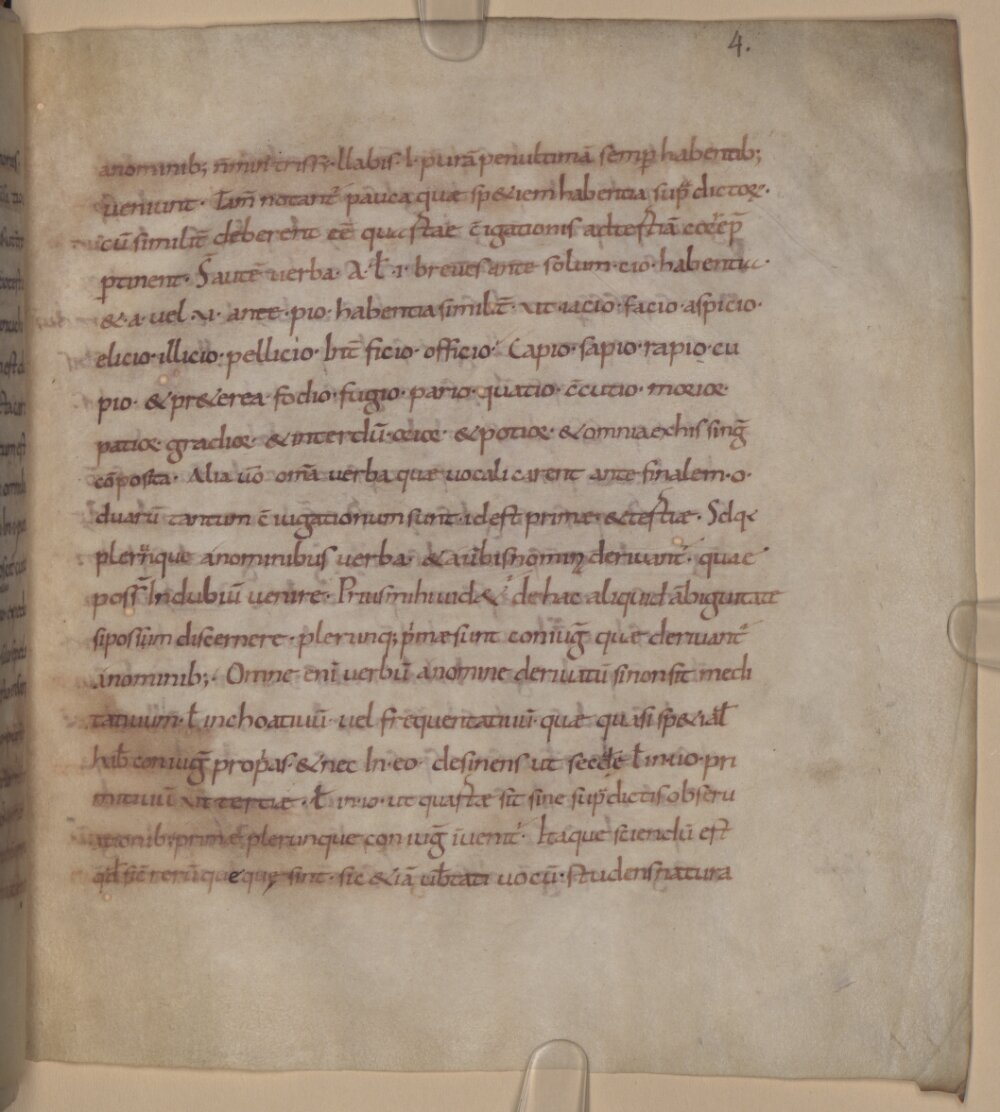 4.
anominib; nimis trissillabis ł purā penultimā semp habentib;
ueniunt · Tam̄ notant pauca quae sp&iem habentia sup dictoꝝ ·
cū similit̄ deberent eē quartae c̄igationis ad tertiā
ptinent · S aute uerba · A · ł · i · breues ante solum · cio · habentia ·
& · a · uel · xi · ante · pio · habentia similit̄ · ut · iacio · facio · aspicio ·
elicio · illicio · pellicio · ficio · officio · Capio · sapio · rapio · cu
pio · & pr&erea · fodio · fugio · pario · quatio · c̄cutio · morior ·
patior · gradior · & interdū · orior · & potior · & omnia exhis sinḡ
cōposita · Alia ūo om̄a uerba quae uocali carent ante finalem · o ·
duarū tantum c̄iugationum sunt · idest primae · & tertiae · Sed q̨
plerūque anominibus uerba · & auerbis nomina deriuant · quae
poss̄ Indubiū uenire · Prius mihi uid& de hac aliquid ābiguitate
si possum discernere · plerunq; pmae sunt coniuḡ quae deriuant
anominib; · Omne enī uerbū anomine deriuatū si non sit medi
tatiuum · ł inchoatiuū · uel frequentatiuū · quae quasi sp&ialē
hab coniuḡ propas · & nec In · eo · desinens ut ł in uo · pri
mitiuū ut tertiae · ł in · io · ut quartae sit sine supdictis obseru
ationib; primae plerunque coniuḡ iuenit · Itaque sciendū est
qd sic rerū queque sunt · sic & iā uocū · studens natura